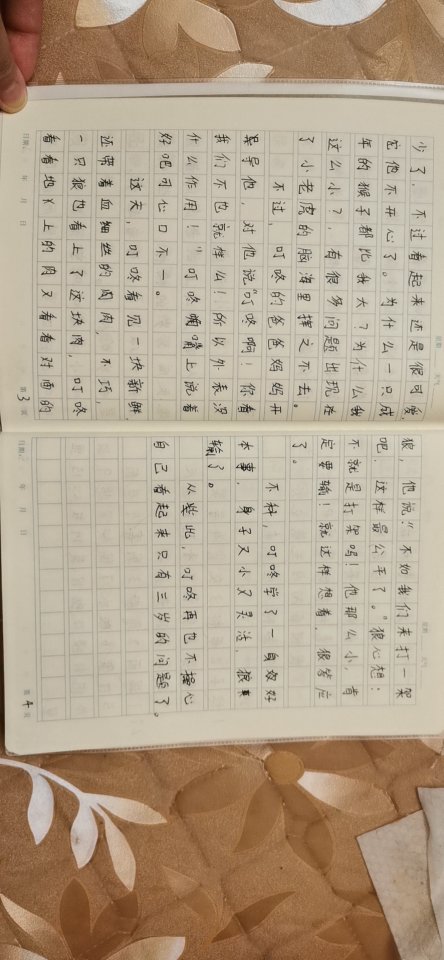 少了，不过看起来还是很可爱，
它他不开心了。为什么一只成
年的猴子都比我大？为什么我
这么小？，有很多问题出现在
了小老虎的脑海里挥之不去。
不过，叮咚的爸爸妈妈开
导他，对他说“叮咚啊！你看
我们不也就样么！所以外表没
什么作用！”叮咚嘴上说着
好吧可心口不一。
这天，叮咚看见一块新鲜
还带着血细丝的肉肉，不巧，
一只狼也看上了这块肉，叮咚
看看地上的肉又看看对面的
日期： 年 月 日
第3页
星期 天气
狼，他说：“不如我们来打一架
吧，这样最公平了。”狼心想：
不就是打架吗！他那么小，肯
定要输！就这样想着，狼答应
了。
不料，叮咚学了一身好
本事，身子又小又灵活，狼
输了。
从此，叮咚再也不担心
自己看起来只有三岁的问题了。
日期： 年 月 日
第4页
星期 天气